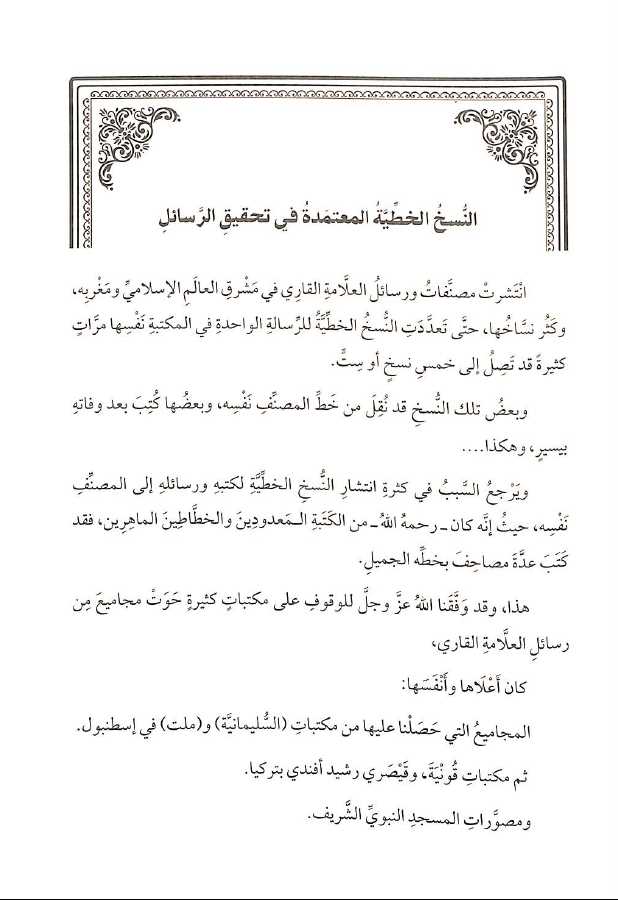 النُّسخُ الخطِّيَّةُ المعتمَدةُ في تحقيقِ الرَّسائلِ
انْتَشرتْ مصنَّفاتُ ورسائلُ العلَّامةِ القاري في مَشْرقِ العالَمِ الإسلاميِّ ومَغْربِه،
وكَثُر نسَّاخُها، حتَّى تعدَّدَتِ النُّسخُ الخطِّيَّةُ للرِّسالةِ الواحدةِ في المكتبةِ نَفْسِها مرَّاتٍ
كثيرةً قد تَصِلُ إلى خمسِ نسخٍ أو ستٍّ.
وبعضُ تلك النُّسخِ قد نُقِلَ من خَطِّ المصنِّفِ نَفْسِه، وبعضُها كُتِبَ بعد وفاتهِ
بيسيرٍ، وهكذا....
ويَرْجعُ السَّببُ في كثرةِ انتشارِ النُّسخِ الخطِّيَّةِ لكتبهِ ورسائلهِ إلى المصنِّفِ
نَفْسِه، حيثُ إنَّه كان ـ رحمهُ اللهُ ـ من الكَتَبةِ الـمَعدودِينَ والخطَّاطِينَ الماهرِين، فقد
كَتَبَ عدَّةَ مصاحِفَ بخطِّه الجميلِ.
هذا، وقد وَفَّقَنا اللهُ عزَّ وجلَّ للوقوفِ على مكتباتٍ كثيرةٍ حَوَتْ مجاميعَ مِن
رسائلِ العلَّامةِ القاري،
كان أَعْلَاها وأَنْفَسَها:
المجاميعُ التي حَصَلْنا عليها من مكتباتِ (السُّليمانيَّة) و(ملت) في إسطنبول.
ثم مكتباتِ قُونْيَةَ، وقَيْصَري رشيد أفندي بتركيا.
ومصوَّراتِ المسجدِ النبويِّ الشَّريف.